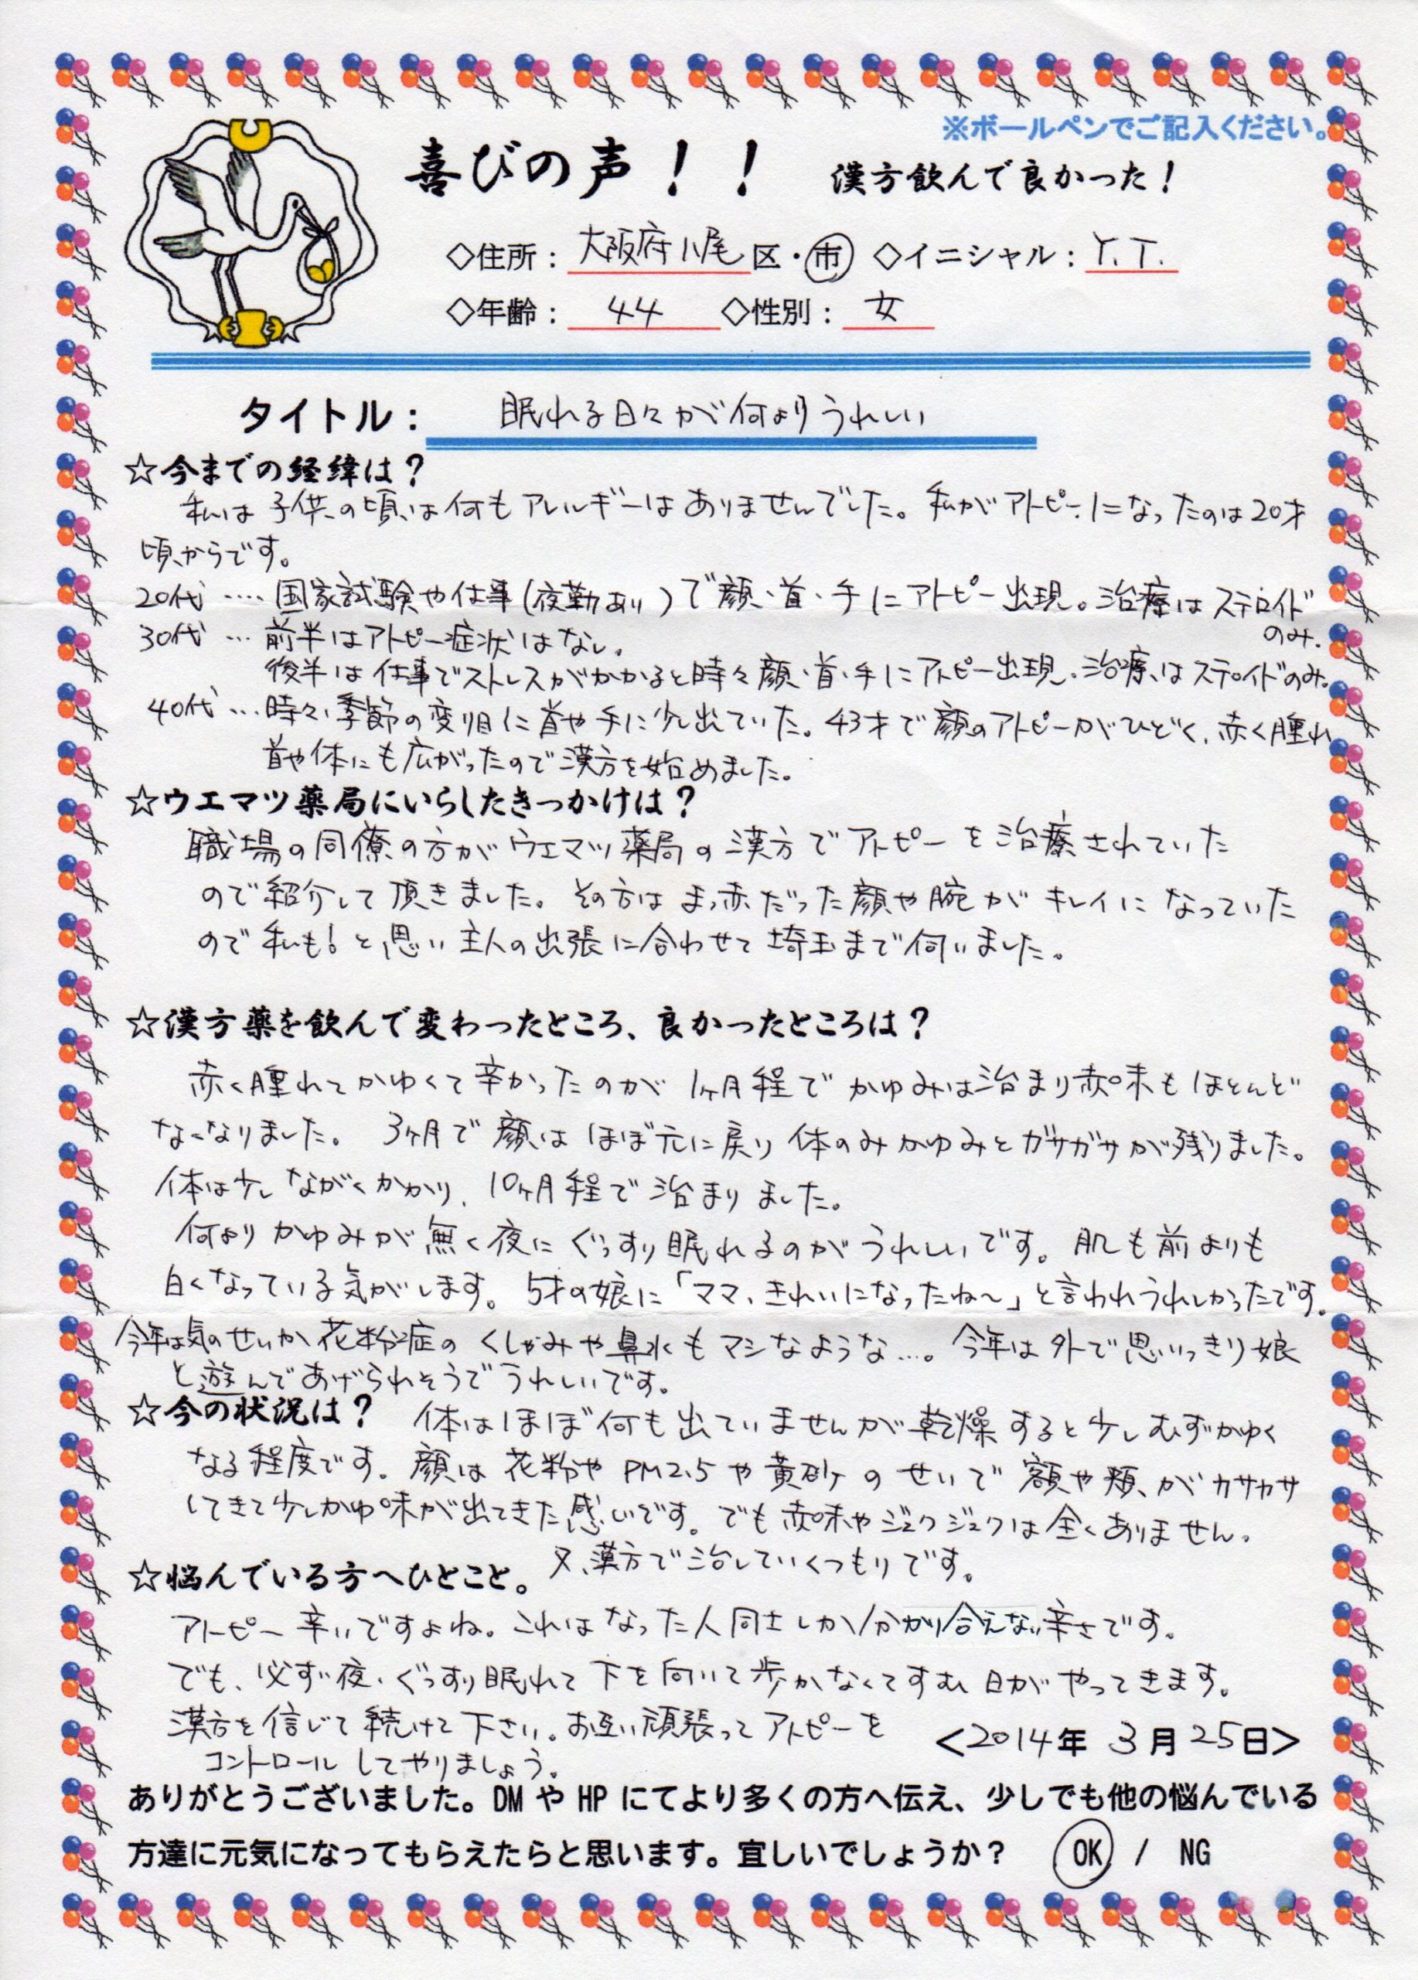 ※ボールペンでご記入ください。
喜びの声！！ 漢方飲んで良かった！
◇住所：大阪府八尾 区・市 ◇イニシャル：Y.T.
◇年齢：44 ◇性別：女
タイトル：眠れる日々が何よりうれしい
☆今までの経緯は？
私は子供の頃は何もアレルギーはありませんでした。私がアトピーになったのは20才
頃からです。
20代 ‥‥ 国家試験や仕事(夜勤あり)で顔・首・手にアトピー出現。治療はステロイド
のみ.
30代 … 前半はアトピー症状はなし。
後半は仕事でストレスがかかると時々顔・首・手にアトピー出現。治療はステロイドのみ。
40代 … 時々季節の変り目に首や手に少し出ていた。43才で顔のアトピーがひどく、赤く腫れ
首や体にも広がったので漢方を始めました。
☆ウエマツ薬局にいらしたきっかけは？
職場の同僚の方がウエマツ薬局の漢方でアトピーを治療されていた
ので紹介して頂きました。その方はまっ赤だった顔や腕がキレイになっていた
ので私も!と思い主人の出張に合わせて埼玉まで伺いました。
☆漢方薬を飲んで変わったところ、良かったところは？
赤く腫れてかゆくて辛かったのが1ヶ月程でかゆみは治まり赤味もほとんど
なくなりました。3ヶ月で顔はほぼ元に戻り体のみかゆみとガサガサが残りました。
体は少しながくかかり、10ヶ月程で治まりました。
何よりかゆみが無く夜にぐっすり眠れるのがうれしいです。肌も前よりも
白くなっている気がします。5才の娘に「ママ、きれいになったね〜」と言われうれしかったです。
今年は気のせいか花粉症のくしゃみや鼻水もマシなような…。今年は外で思いっきり娘
と遊んであげられそうでうれしいです。
☆今の状況は？ 体はほぼ何も出ていませんが乾燥すると少しむずかゆく
なる程度です。顔は花粉やPM2.5や黄砂のせいで額や頬がカサカサ
してきて少しかゆ味が出てきた感じです。でも赤味やジュクジュクは全くありません。
又、漢方で治していくつもりです。
☆悩んでいる方へひとこと。
アトピー辛いですよね。これはなった人同士しか分かり合えない辛さです。
でも、必ず夜、ぐっすり眠れて下を向いて歩かなくてすむ日がやってきます。
漢方を信じて続けて下さい。お互い頑張ってアトピーを
コントロールしてやりましょう。
＜2014年 3月25日＞
ありがとうございました。DMやHPにてより多くの方へ伝え、少しでも他の悩んでいる
方達に元気になってもらえたらと思います。宜しいでしょうか？ OK / NG